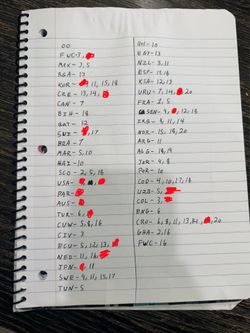 00
FWC-3,
MEX-3, 5
RSA-13
KOR- 11, 15, 18
CZE-13, 14,
CAN-7
BIH-18
QAT-12
SUI- 17
BRA-7
MAR-5, 10
HAI-10
SCO-2, 5, 18
USA-
PAR-
AUS-
TUR-6,
CUW-5, 8, 16
CIV-3
ECU-5, 12, 13,
NED-11, 16,
JPN- 11
SWE-4, 11, 15, 17
TUN-5
BEL-10
EGY-13
NZL-3, 11
ESP-15, 18
KSA-12, 13
URU-7, 14, 20
FRA-1, 5
SEN-9, 12, 18
IRQ-8, 11, 14
NOR-15, 18, 20
ARG-11
ALG-18, 19
JOR-4, 8
POR-10
COD-4, 10, 17, 18
UZB-5,
COL-3,
ENG-6
CRO-6, 8, 11, 13, 20
GHA-2, 16
FWC-16